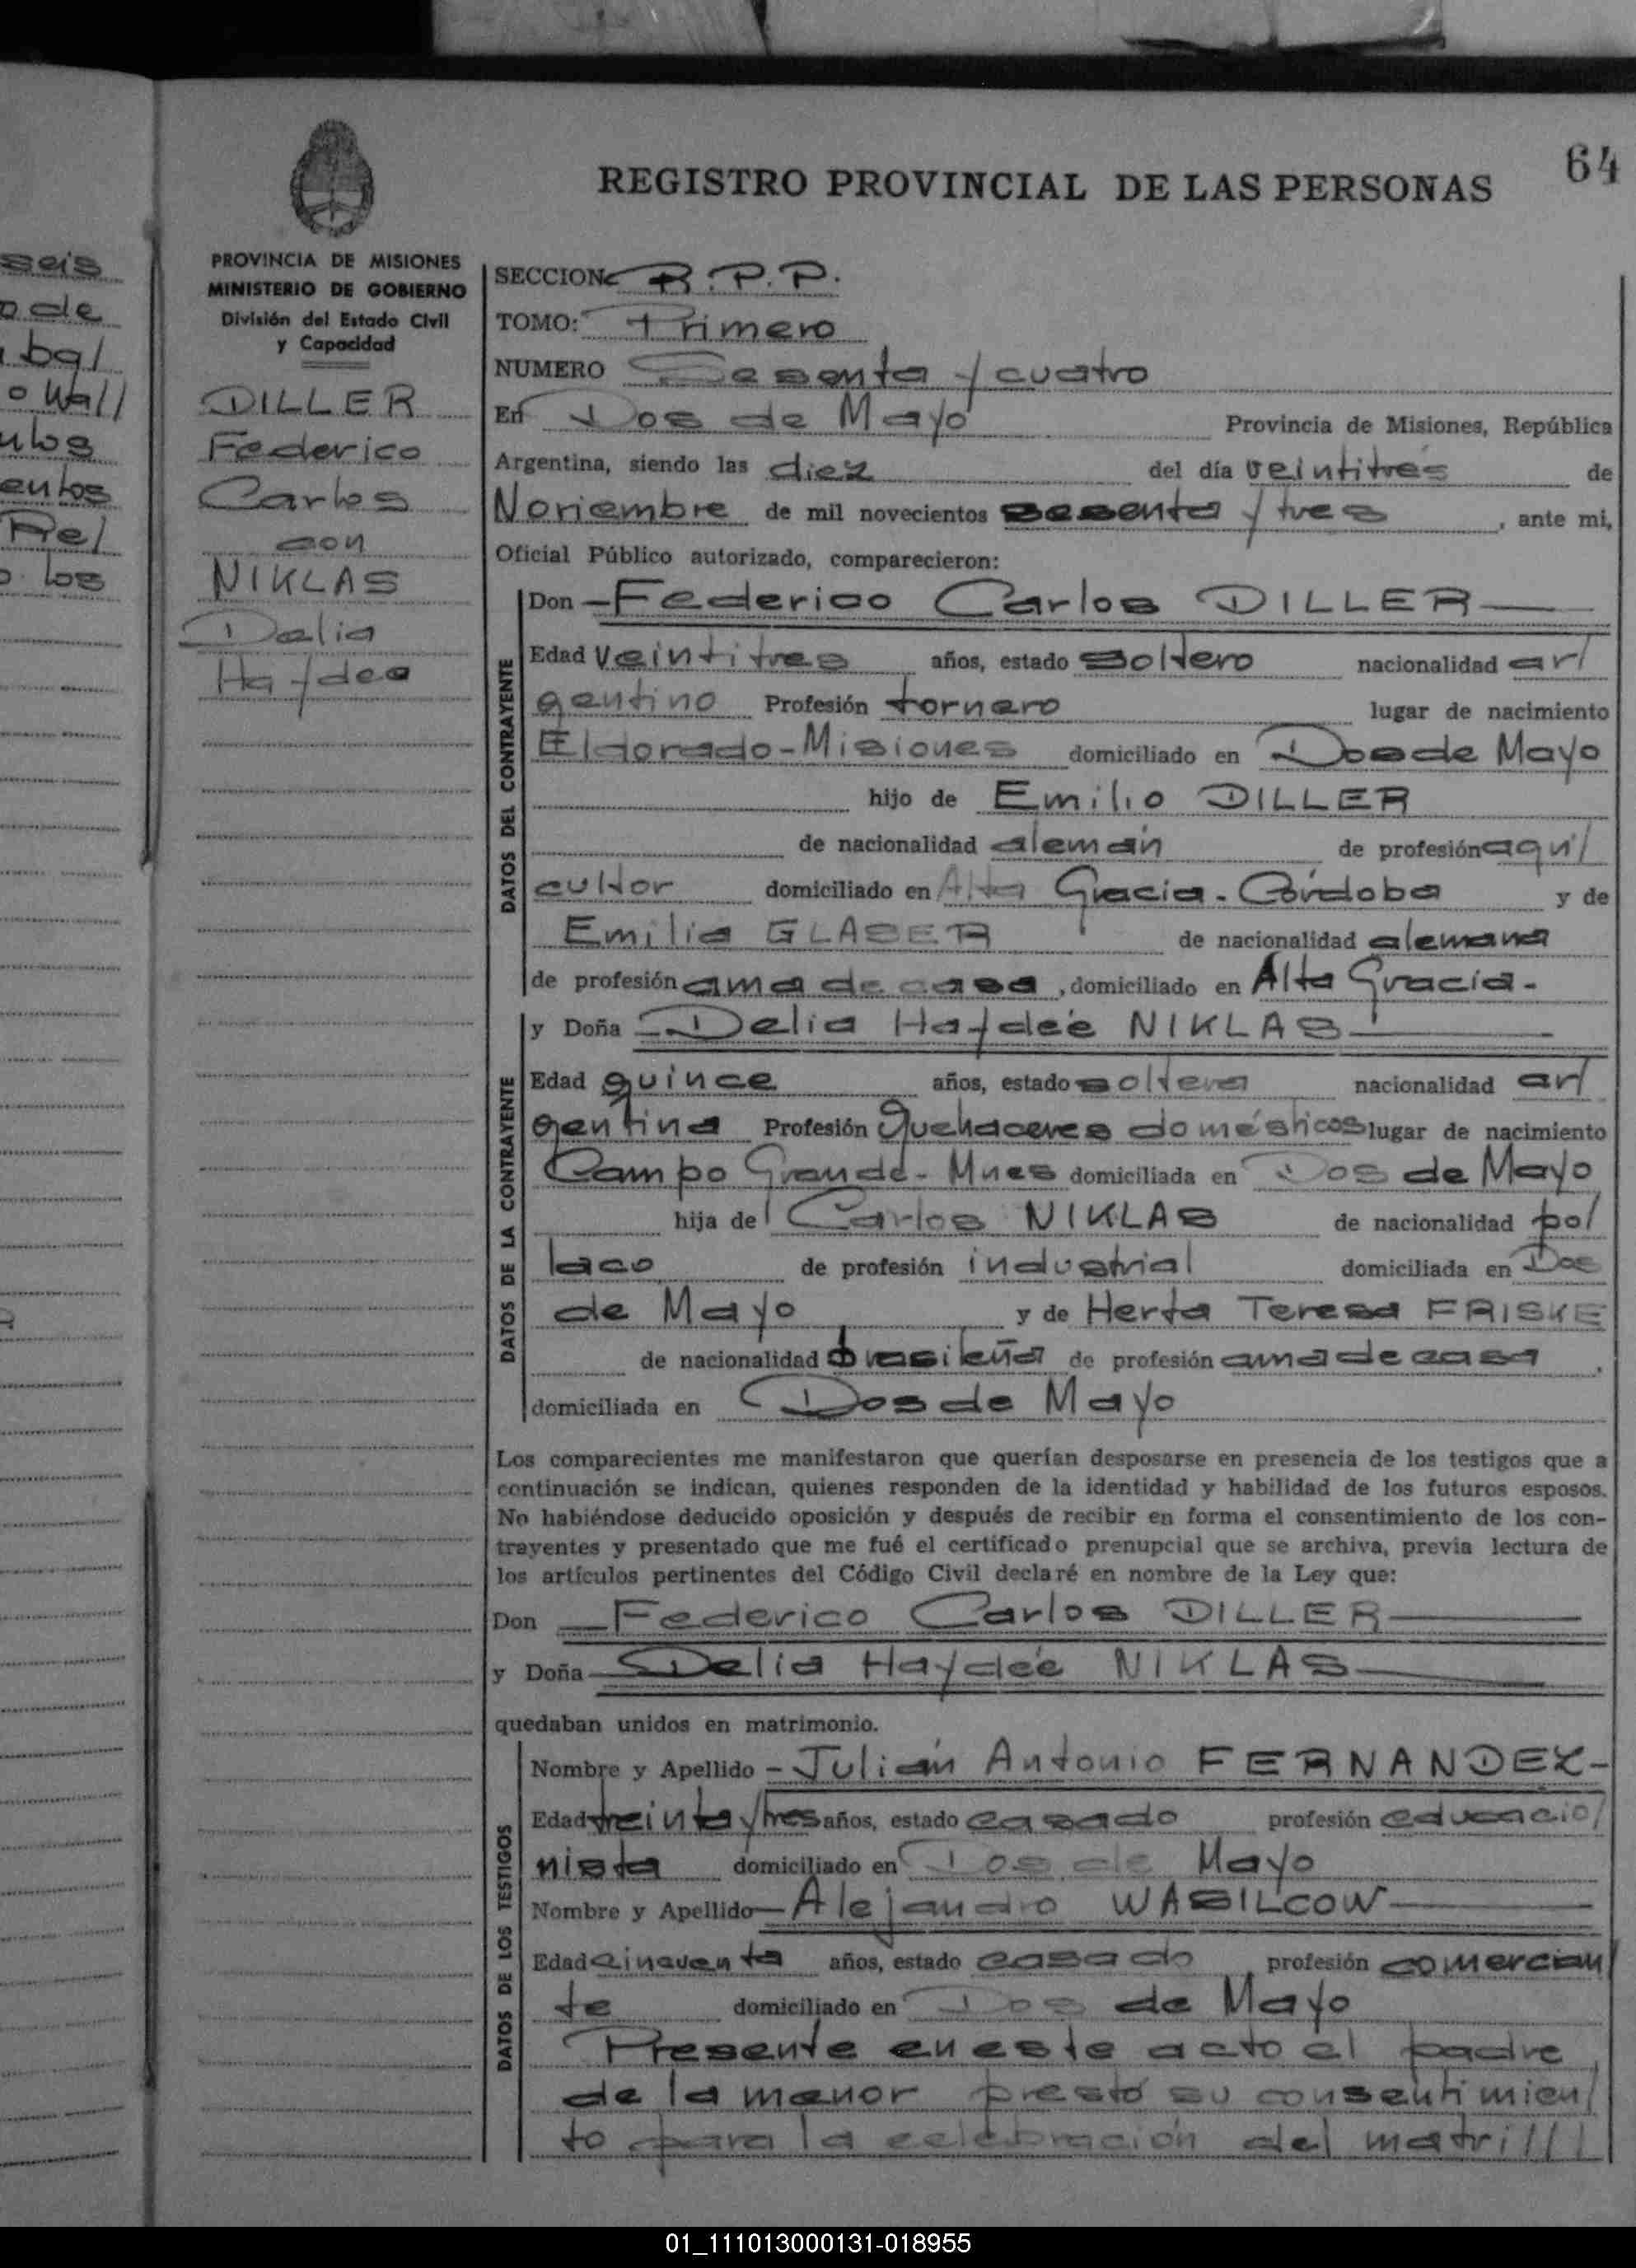 64
REGISTRO PROVINCIAL DE LAS PERSONAS
seis
o de
bgl
o Wall
ulos
entos
Rel
o los
PROVINCIA DE MISIONES
MINISTERIO DE GOBIERNO
División del Estado Civil
y Capacidad
DILLER
Federico
Carlos
con
NIKLAS
Delia
Haydee
SECCION R.P.P.
TOMO: Primero
NUMERO Sesenta y cuatro
En Dos de Mayo Provincia de Misiones, República
Argentina, siendo las diez del día veintitrés de
Noviembre de mil novecientos sesenta y tres, ante mi,
Oficial Público autorizado, comparecieron:
DATOS DEL CONTRAYENTE
Don —Federico Carlos DILLER—
Edad veintitres años, estado soltero nacionalidad ar/
gentino Profesión tornero lugar de nacimiento
Eldorado-Misiones domiciliado en Dos de Mayo
hijo de Emilio DILLER
de nacionalidad alemán de profesión agri/
cultor domiciliado en Alta Gracia-Córdoba y de
Emilia GLASER de nacionalidad alemana
de profesión ama de casa, domiciliado en Alta Gracia-
DATOS DE LA CONTRAYENTE
y Doña —Delia Haydée NIKLAS—
Edad quince años, estado soltera nacionalidad ar/
gentina Profesión Quehaceres domésticos lugar de nacimiento
Campo Grande-Mnes domiciliada en Dos de Mayo
hija de Carlos NIKLAS de nacionalidad pol/
laco de profesión industrial domiciliada en Dos
de Mayo y de Herta Teresa FRISKE
de nacionalidad brasileña de profesión ama de casa,
domiciliada en Dos de Mayo
Los comparecientes me manifestaron que querían desposarse en presencia de los testigos que a
continuación se indican, quienes responden de la identidad y habilidad de los futuros esposos.
No habiéndose deducido oposición y después de recibir en forma el consentimiento de los con-
trayentes y presentado que me fué el certificado prenupcial que se archiva, previa lectura de
los artículos pertinentes del Código Civil declaré en nombre de la Ley que:
Don —Federico Carlos DILLER—
y Doña —Delia Haydée NIKLAS—
quedaban unidos en matrimonio.
DATOS DE LOS TESTIGOS
Nombre y Apellido —Julián Antonio FERNANDEZ—
Edad treinta y tres años, estado casado profesión educacio/
nista domiciliado en Dos de Mayo
Nombre y Apellido —Alejandro WASILCOW—
Edad cincuenta años, estado casado profesión comercian/
te domiciliado en Dos de Mayo
Presente en este acto el padre
de la menor prestó su consentimien/
to para la celebración del matri///
01_111013000131-018955